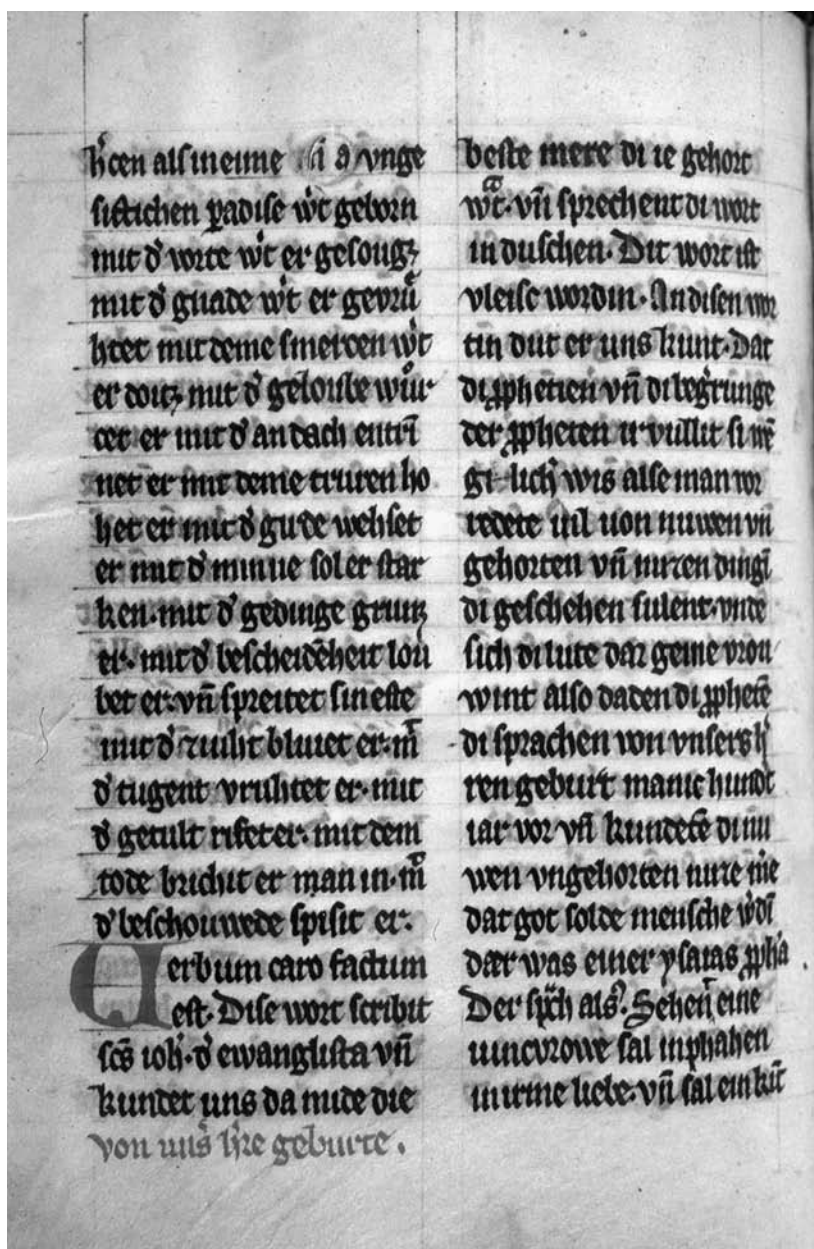 h̓cen als in eime in d̓ vnge
sistichen ꝑadise wͥt geborn
mit d̓ worte wͥt er gesougꝫ
mit d̓ gnade wͥt er gevrů
htet mit deme smercen wͥt
er doitꝫ mit d̓ geloube wůr
cet er mit d̓ andach entrī
net er mit deme truren ho
het er mit d̓ gute wehset
er mit d̓ minne sol er star
ken. mit d̓ gedinge grunꝫ
er. mit d̓ bescheidēheit lou
bet er. vn̄ spreitet sin este
mit d̓ zuiht bluiet er. m̄
d̓ tugent vruhtet er. mit
d̓ getult rifet er. mit dem
tode brichit er man in. m̄
d̓ beschouwede spisit er.
Uerbum caro factum
est. Dise wort scribit
sc̄s ioh̓. d̓ ewanglista vn̄
kundet uns da mide die
von uns̓ h̓re geburte.
beste mere di ie gehort
waͣt. vn̄ sprechent di wort
in duschen. Dit wort ist
vleisc wordin. An disen wor
tin dut er uns kunt. Dat
di ꝓphetien vn̄ di beg̓runge
der ꝓpheten ir vullit si
lich wis alse man vor
redete uil uon nuwen vn̄
gehorten vn̄ dingī
di geschehen sulent. vnde
sich di lute dar geine vrou
wint also daden di ꝓphetē
di sprachen von vnsers h̓
ren geburt manic hund̓t
iar vor vn̄ kundetē di nu
wen vngehorten mere
dat got solde mensche w̓dī
dar was einer ysaias ꝓph̓a
Der sp̄ch als̓. Sehen̄ eine
iuncvrowe sal inphahen
in irme liebe. vn̄ sal ein kīt